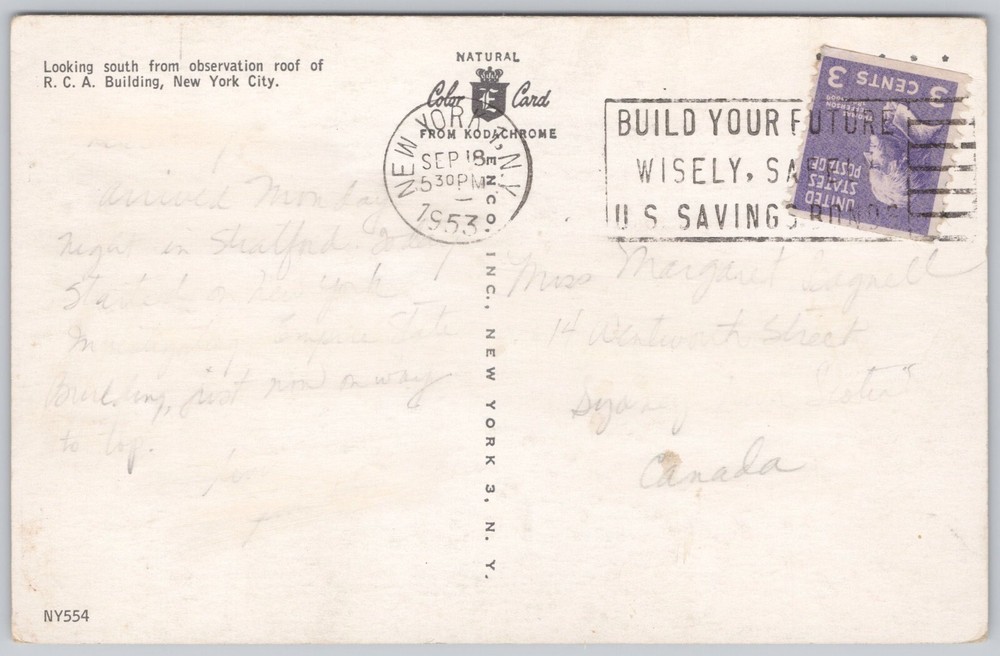 Looking south from observation roof of
R. C. A. Building, New York City.
NATURAL
Color E Card
FROM KODACHROME
ENCO. INC., NEW YORK 3, N. Y.
NEW YORK, N.Y.
SEP 18
5 30 PM
1953
BUILD YOUR FUTURE
WISELY, SAFELY
U.S. SAVINGS BONDS
3 CENTS 3
THOMAS JEFFERSON
UNITED
STATES
POSTAGE
arrived Monday
night in Stratford Today
Started on New York
Empire State
Building, just now on way
to top.
Miss Margaret
14 Wentworth Street
Sydney Scotia
Canada
NY554